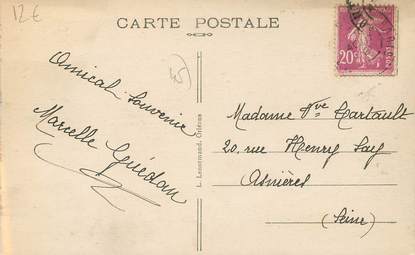 12€
CARTE POSTALE
20c
45
Amical Souvenir
Marcelle Guédan
L. Lenormand, Orléans
Madame Vve Hartault
20, rue Henry Say
Asnières
(Seine)